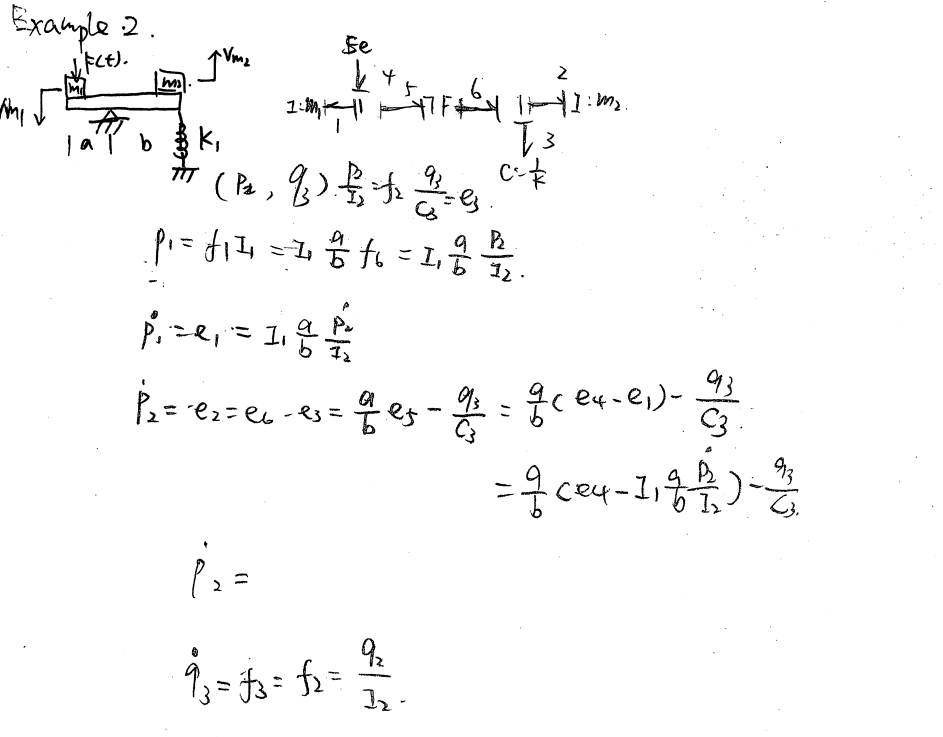 Example 2.
F(t).
m₁ m₂ Vm₂
Vm₁
a b K₁
Se
4 5 6 2
I:m₁ 1 TF 1 I:m₂
1 3
C:1/k
(P₂, q₃) P₂/I₂ = f₂ q₃/C₃ = e₃
p₁ = f₁I₁ = I₁ a/b f₆ = I₁ a/b P₂/I₂.
ṗ₁ = e₁ = I₁ a/b ṗ₂/I₂
ṗ₂ = e₂ = e₆ - e₃ = a/b e₅ - q₃/C₃ = a/b (e₄ - e₁) - q₃/C₃.
= a/b (e₄ - I₁ a/b ṗ₂/I₂) - q₃/C₃.
ṗ₂ =
q̇₃ = f₃ = f₂ = q₂/I₂.